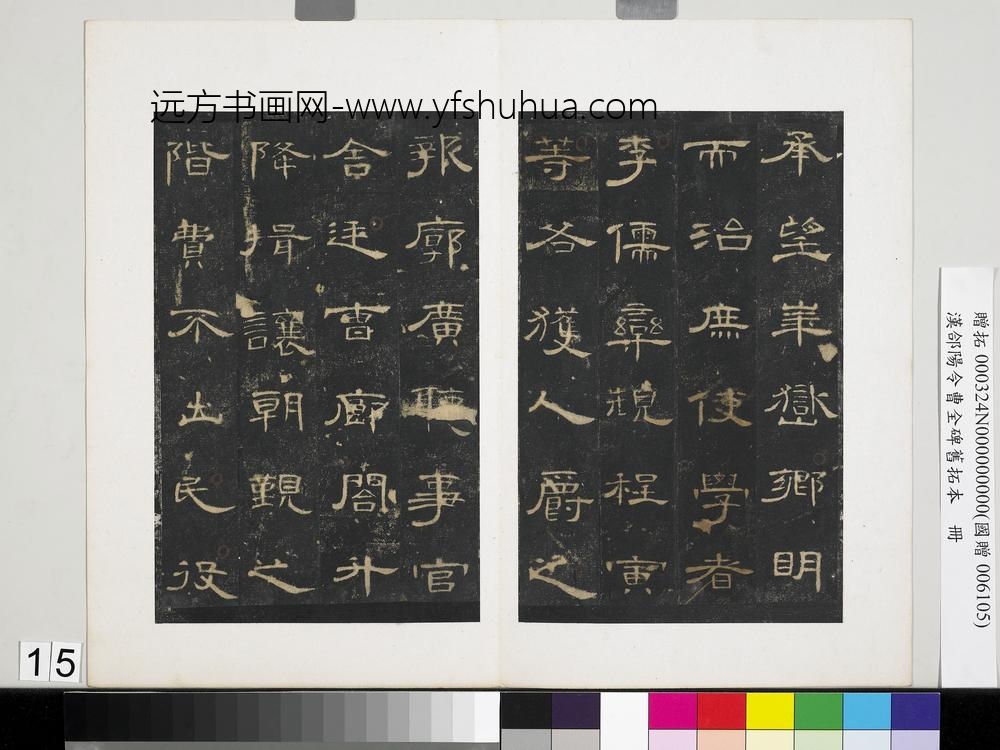 远方书画网-www.yfshuhua.com
承望華嶽鄉明
而治庶使學者
李儒欒規程寅
等各獲人爵之
報廓廣聽事官
舍廷曹廊閤升
降揖讓朝覲之
階費不出民役
贈拓 000324N000000000(國贈 006105)
漢郃陽令曹全碑舊拓本 冊
15